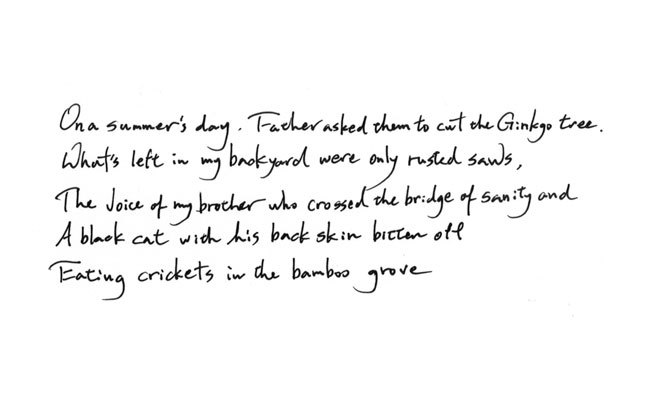 On a summer's day. Father asked them to cut the Ginkgo tree.
What's left in my backyard were only rusted saws,
The Voice of my brother who crossed the bridge of sanity and
A black cat with his back skin bitten off
Eating crickets in the bamboo grove